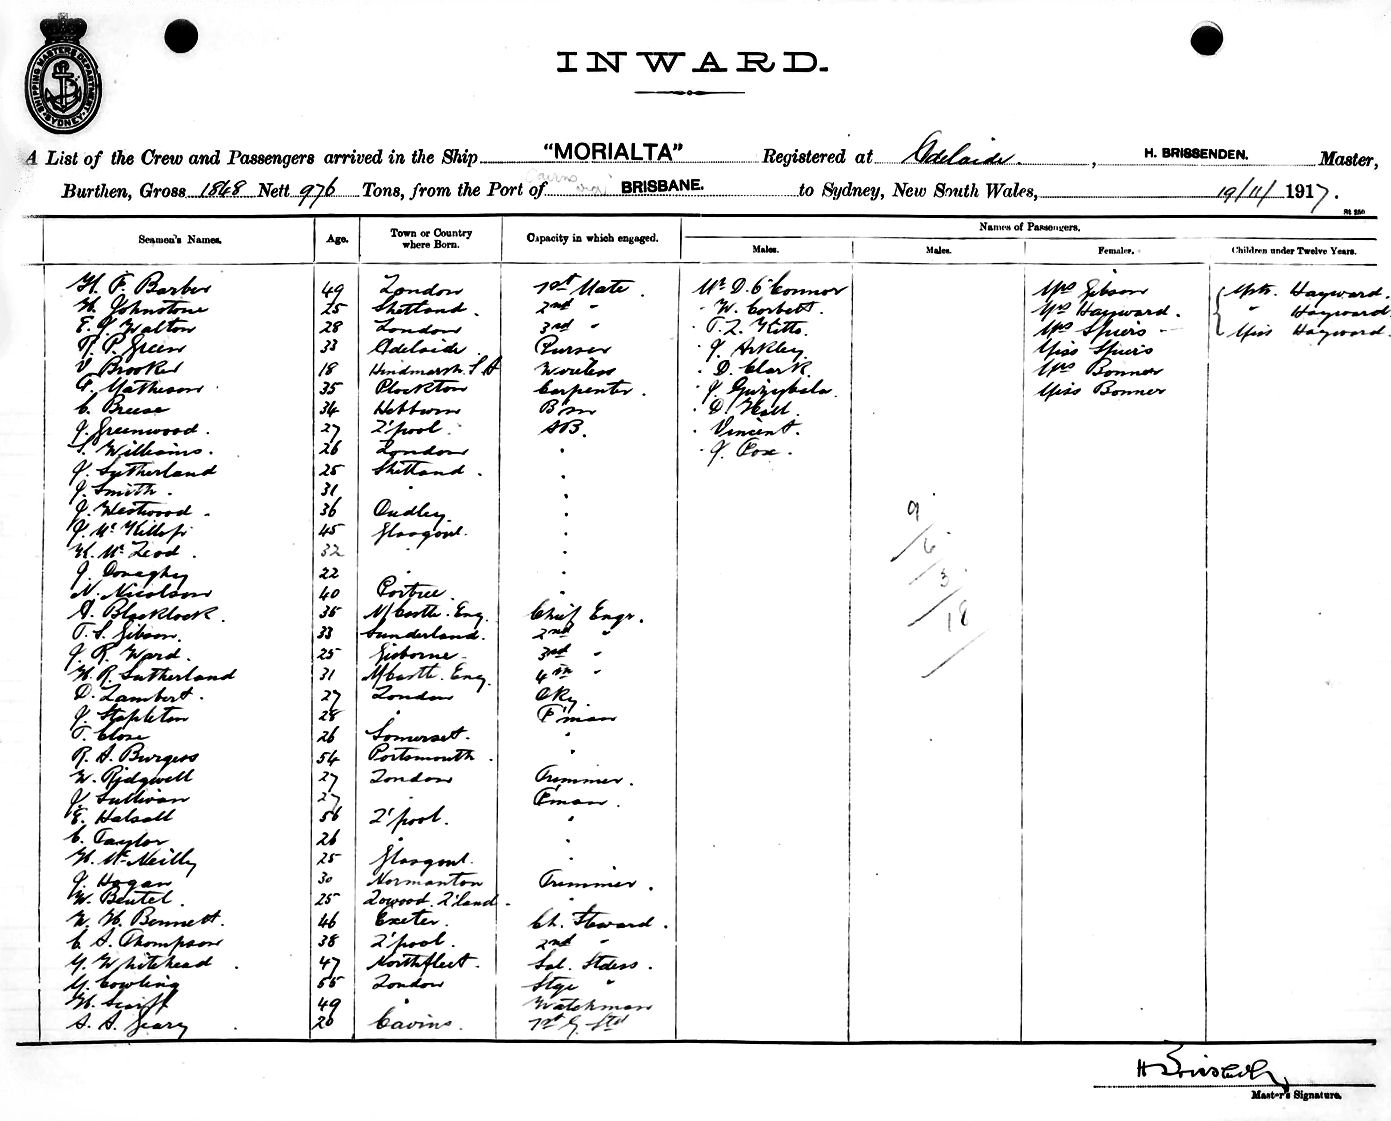 SHIPPING MASTER'S DEPARTMENT SYDNEY
INWARD.
A List of the Crew and Passengers arrived in the Ship "MORIALTA" Registered at Adelaide, H. BRISSENDEN. Master,
Burthen, Gross 1848 Nett 976 Tons, from the Port of Cairns via BRISBANE. to Sydney, New South Wales, 19/11/1917.
Seamen's Names. Age. Town or Country where Born. Capacity in which engaged. Names of Passengers.
Males. Males. Females. Children under Twelve Years.
H. F. Barber 49 London 1st Mate. Mr D. O'Connor Mrs Gibson Mstr. Hayward.
H. Johnstone 25 Shetland. 2nd " " W. Corbett. Mrs Hayward. " Hayward
E. J. Walton 28 London 3rd " " T. L. Kitto Mrs Spiers Miss Hayward.
R. P. Green 33 Adelaide Purser " J. Arkley Miss Spiers
V. Brooker 18 Hindmarsh. S A Wireless " D. Clark. Mrs Bonner
Matheson 35 Plockton Carpenter. " J. Miss Bonner
C. Breese 34 Hebburn B'sn " D. Hall
J. Greenwood. 27 L'pool. AB. " Vincent.
S. Williams. 26 London " " J. Cox.
J. Sutherland 25 Shetland. "
J. Smith. 31 " "
J. Westwood. 36 Dudley "
J. Mc 45 Glasgow. "
H. McLeod. 32 " "
J. Donaghey 22 " "
N. Nicolson 40 Portree. "
A. Blacklock. 35 N/Castle. Eng. Chief Engr.
T. S. Gibson. 33 Sunderland. 2nd "
J. R. Ward. 25 Gisborne 3rd "
H. R. Sutherland 31 N/Castle. Eng. 4th "
D. Lambert. 27 London Dky
J. Stapleton 28 " F'man
T. Close 26 Somerset. "
R. A. Burgess 54 Portsmouth. "
W. Ridgwell 27 London Trimmer.
J. Sullivan 27 " F'man.
E. Halsall 56 L'pool. "
C. Taylor 26 " "
H. McNeilly 25 Glasgow. "
J. Hogan 30 Normanton Trimmer.
W. Beutel. 25 Lowood. Q'land. "
W. H. Bennett. 46 Exeter. Ch. Steward.
C. A. Thompson 38 L'pool. 2nd "
Y. Whitehead 47 Northfleet. Sal. Stdess.
Y. Cowling 55 London Stge "
H. 49 " Watchman
A. A. Geary 20 1st G. Std
9
6
3
18
H Brissenden
Master's Signature.